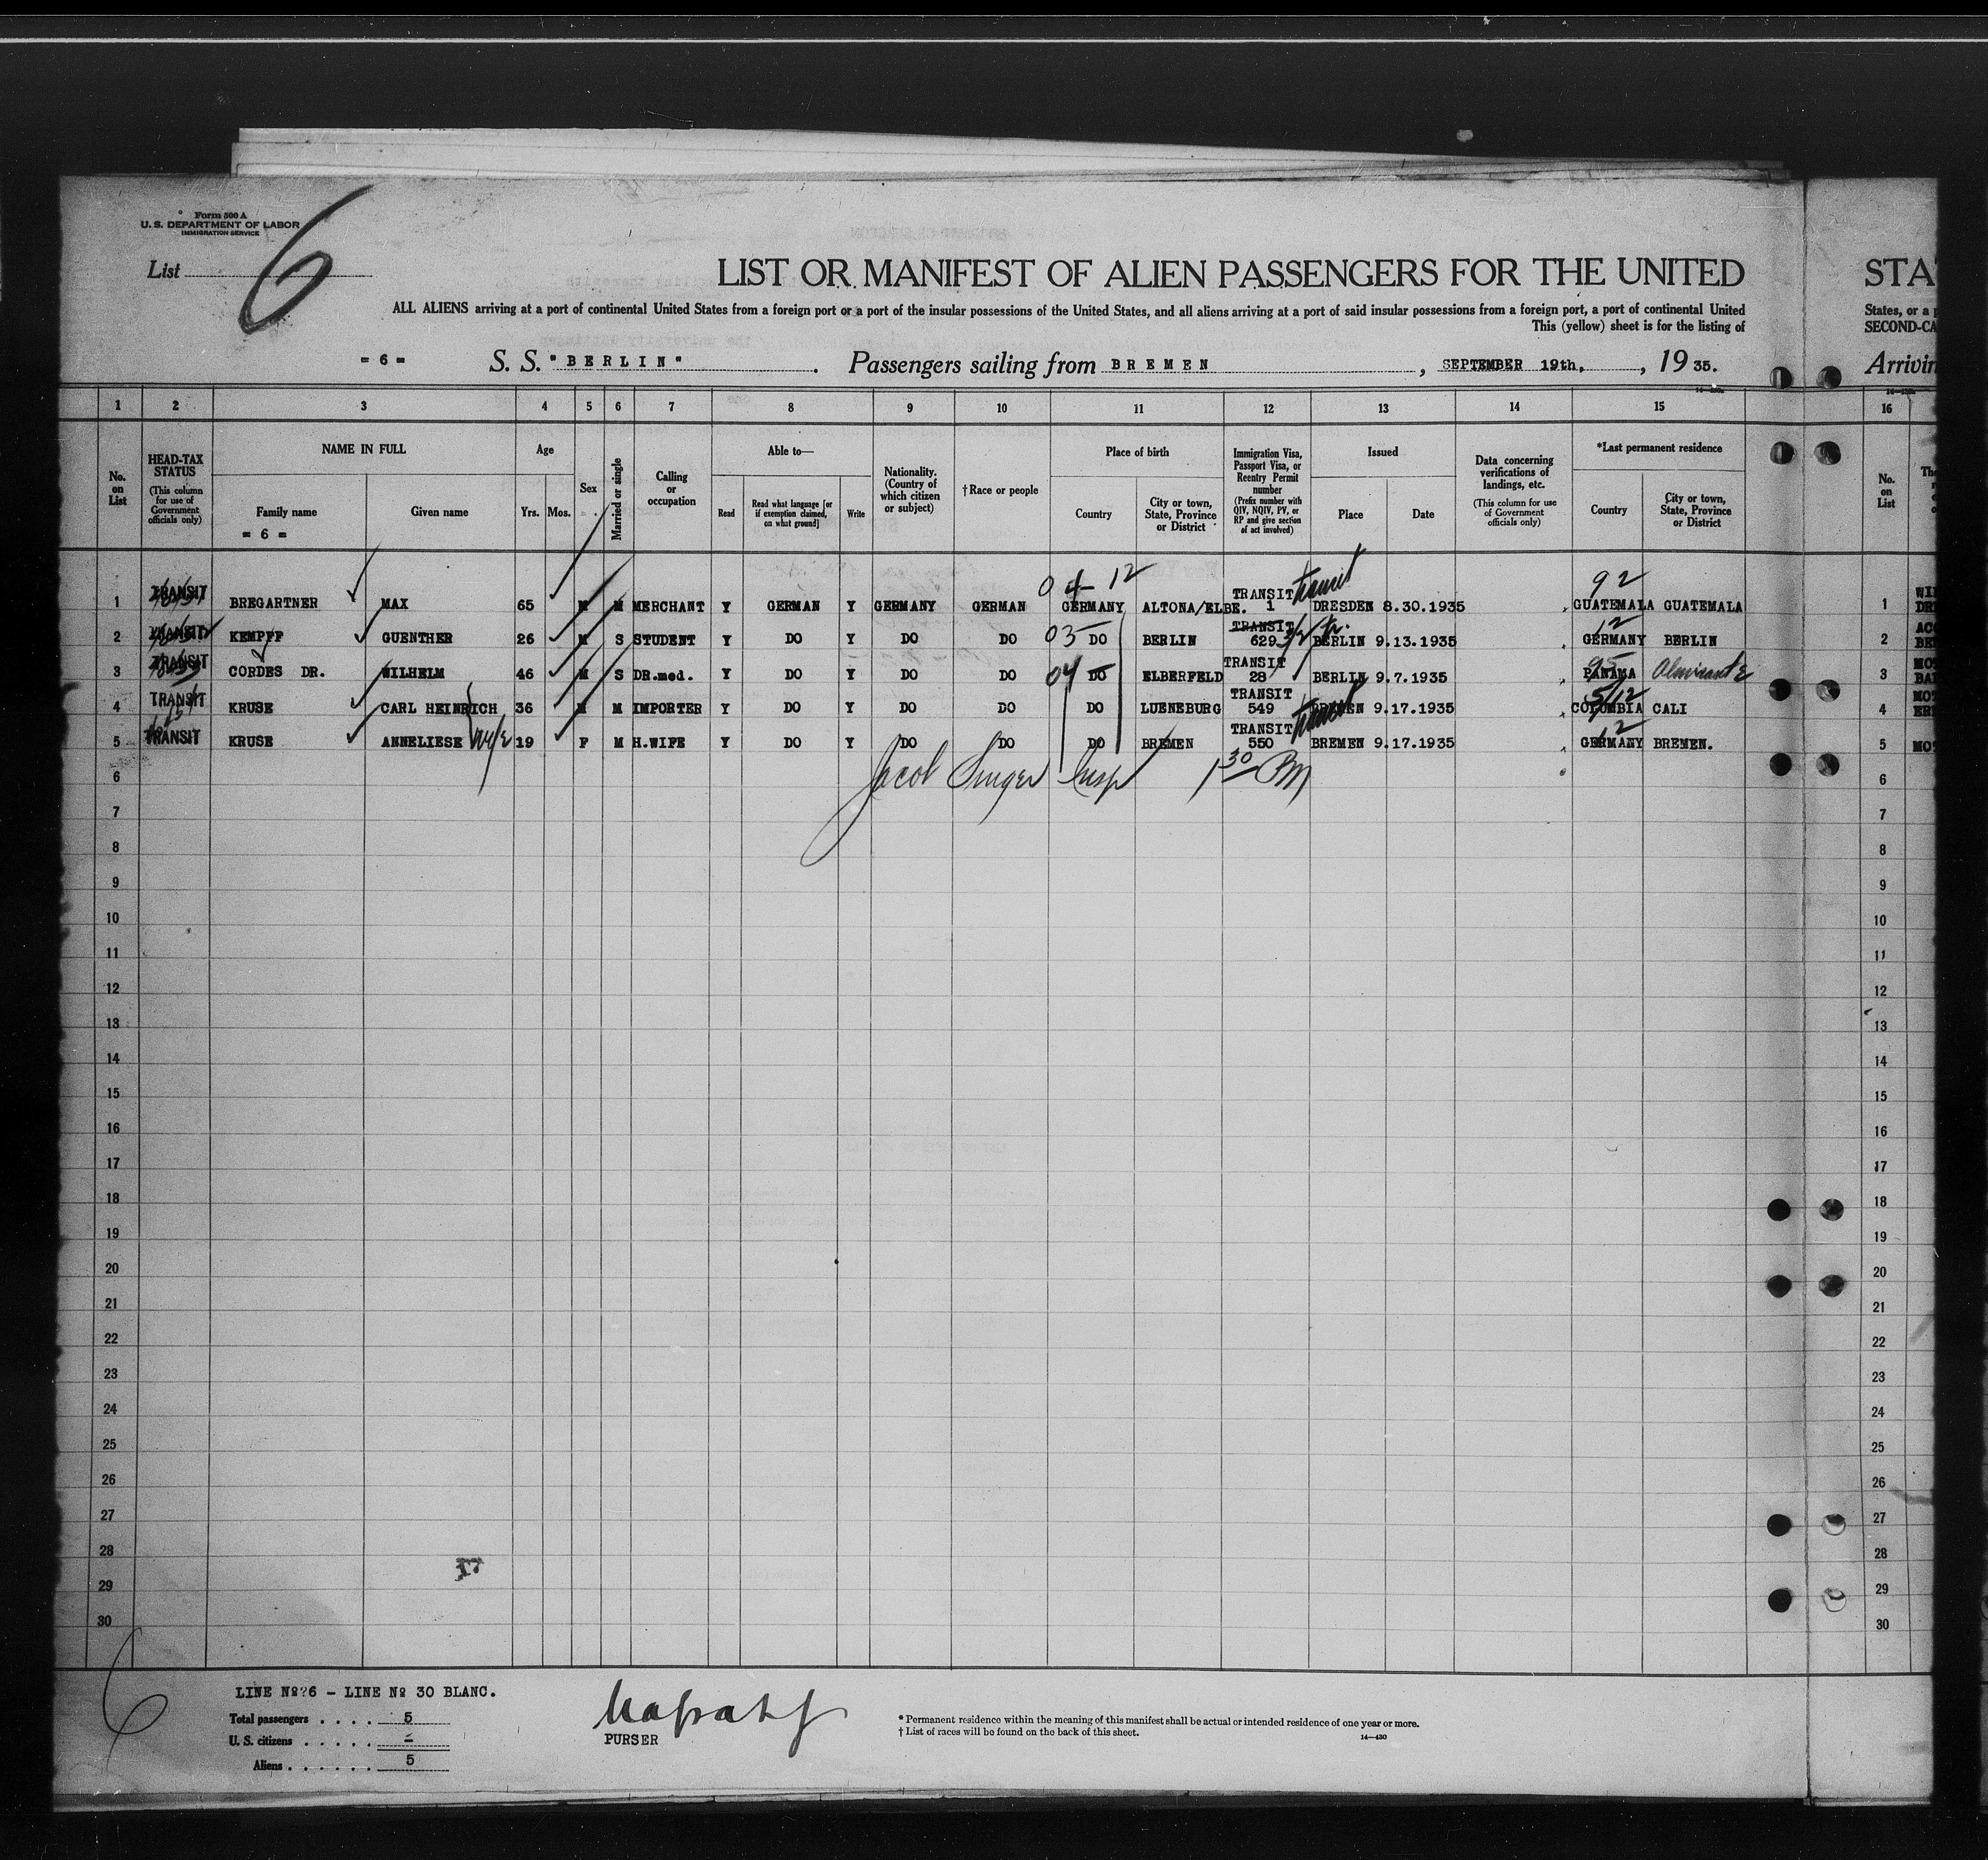 Form 500 A
U. S. DEPARTMENT OF LABOR
IMMIGRATION SERVICE
List 6
LIST OR MANIFEST OF ALIEN PASSENGERS FOR THE UNITED STA
ALL ALIENS arriving at a port of continental United States from a foreign port or a port of the insular possessions of the United States, and all aliens arriving at a port of said insular possessions from a foreign port, a port of continental United States, or a
This (yellow) sheet is for the listing of SECOND-CA
= 6 = S. S. "BERLIN". Passengers sailing from BREMEN, SEPTEMBER 19th, 1935. Arrivin
1 2 3 4 5 6 7 8 9 10 11 12 13 14 15 16
No. on List
HEAD-TAX STATUS (This column for use of Government officials only)
NAME IN FULL
Family name
Given name
= 6 =
Age
Yrs. Mos.
Sex
Married or single
Calling or occupation
Able to—
Read
Read what language [or if exemption claimed, on what ground]
Write
Nationality. (Country of which citizen or subject)
†Race or people
Place of birth
Country
City or town, State, Province or District
Immigration Visa, Passport Visa, or Reentry Permit number (Prefix number with QIV, NQIV, PV, or RP and give section of act involved)
Issued
Place
Date
Data concerning verifications of landings, etc. (This column for use of Government officials only)
*Last permanent residence
Country
City or town, State, Province or District
No. on List
04-12 transit 92
1 TRANSIT BREGARTNER MAX 65 M M MERCHANT Y GERMAN Y GERMANY GERMAN GERMANY ALTONA/ELBE. TRANSIT 1 DRESDEN 8.30.1935 GUATEMALA GUATEMALA 1
2 TRANSIT KEMPFF GUENTHER 26 M S STUDENT Y DO Y DO DO 03 DO BERLIN TRANSIT 629 3/2 tr. BERLIN 9.13.1935 12 GERMANY BERLIN 2
3 TRANSIT CORDES DR. WILHELM 46 M S DR.med. Y DO Y DO DO 04 DO ELBERFELD TRANSIT 28 BERLIN 9.7.1935 95 PANAMA Almirante 3
4 TRANSIT KRUSE CARL HEINRICH 36 M M IMPORTER Y DO Y DO DO DO LUENEBURG TRANSIT 549 BREMEN 9.17.1935 5/12 COLUMBIA CALI 4
5 TRANSIT KRUSE ANNELIESE wife 19 F M H.WIFE Y DO Y DO DO DO BREMEN TRANSIT 550 transit BREMEN 9.17.1935 12 GERMANY BREMEN. 5
6 Jacob Singer Insp 1 30 PM 6
7 7
8 8
9 9
10 10
11 11
12 12
13 13
14 14
15 15
16 16
17 17
18 18
19 19
20 20
21 21
22 22
23 23
24 24
25 25
26 26
27 27
28 17 28
29 29
30 30
6
LINE No 6 - LINE No 30 BLANC.
Total passengers . . . . 5
U. S. citizens . . . . . -
Aliens . . . . . . 5
PURSER
* Permanent residence within the meaning of this manifest shall be actual or intended residence of one year or more.
† List of races will be found on the back of this sheet.
14—430